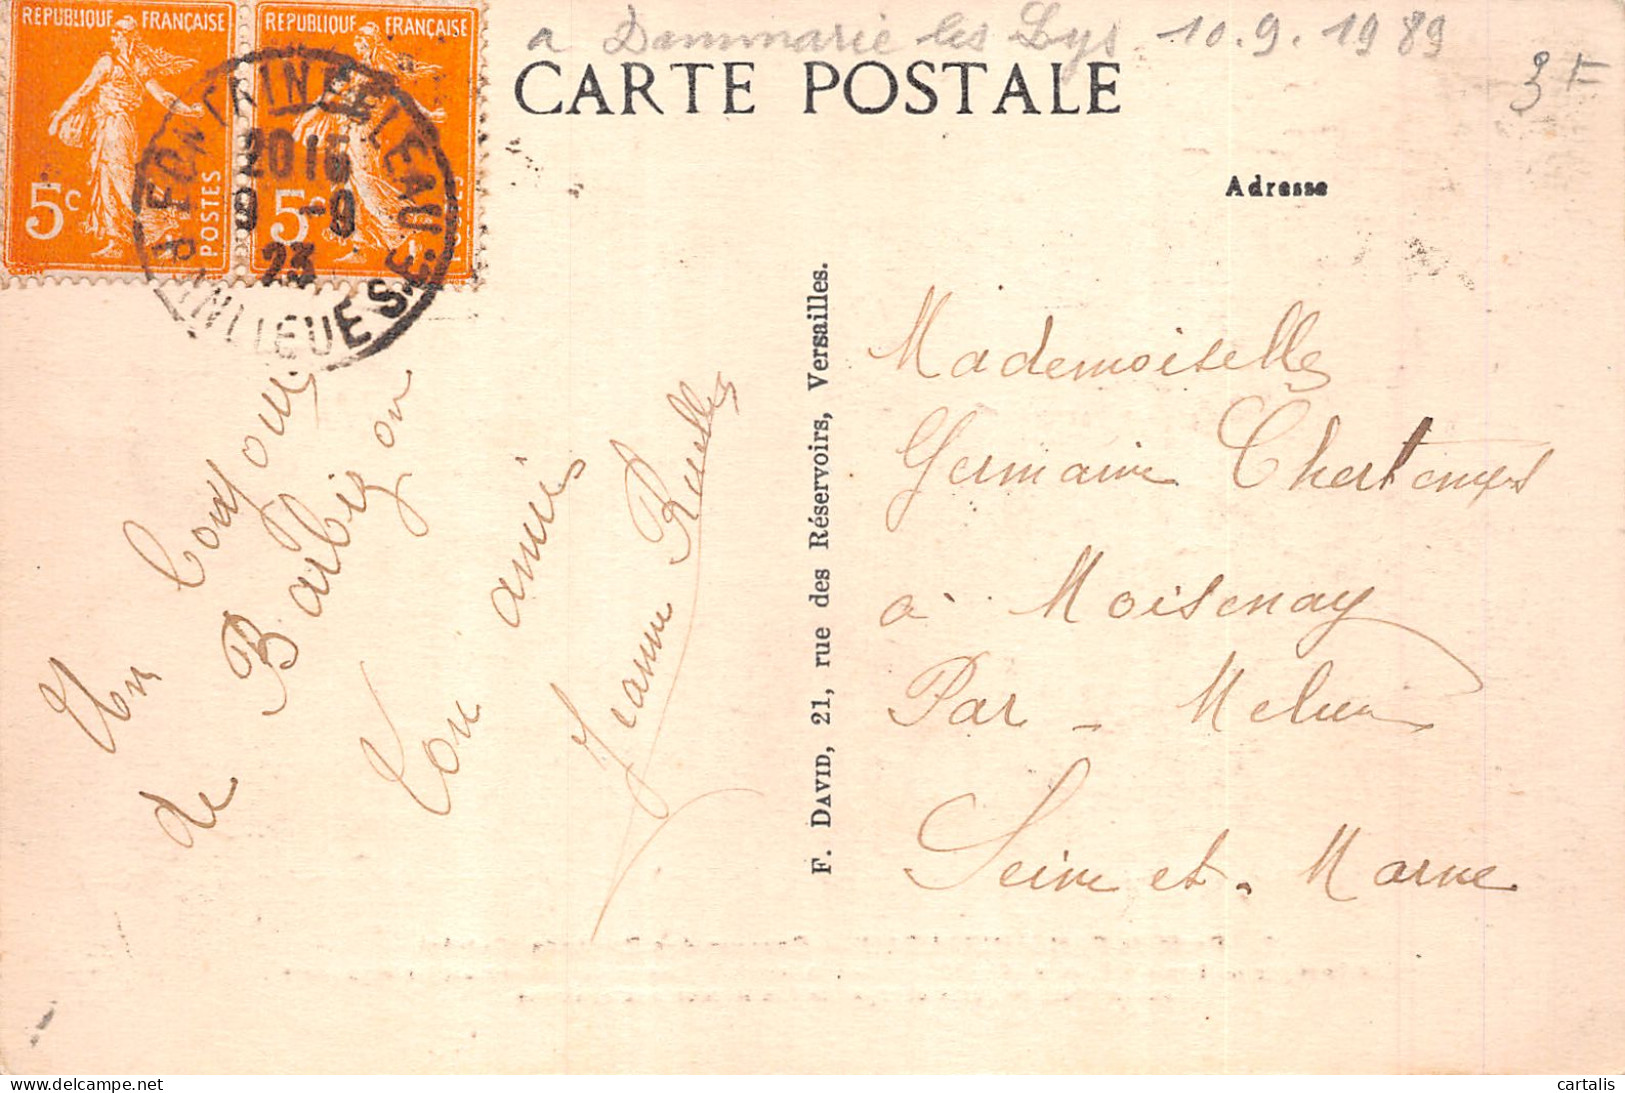 a Dammarie les Lys 10.9.1989
3F
REPUBLIQUE FRANÇAISE
5c
POSTES
REPUBLIQUE FRANÇAISE
5c
FONTAINEBLEAU
2015
9 -9
23
CARTE POSTALE
Adresse
Un bonjour
de Barbizon
Ton amie
Jeanne
F. DAVID, 21, rue des Réservoirs, Versailles.
Mademoiselle
Germaine Chertemps
à Moisenay
Par - Melun
Seine et. Marne
cartalis